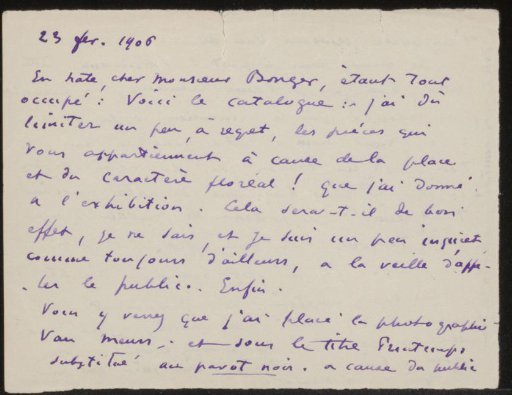 23 fev. 1906
En hate, cher monsieur Bonger, étant tout
occupé : Voici le catalogue :- j'ai dû
limiter un peu, à regret, les pièces qui
vous appartiennent à cause de la place
et du caractère floréal ! que j'ai donné
a l'exhibition. Cela sera-t-il de bon
effet, je ne sais, et je suis un peu inquiet
comme toujours d'ailleurs, a la veille d'appe-
-ler le public. Enfin.
Vous y verrez que j'ai placé la photographie
Van meurs, et sous le titre Printemps
substitué au pavot noir. a cause du public